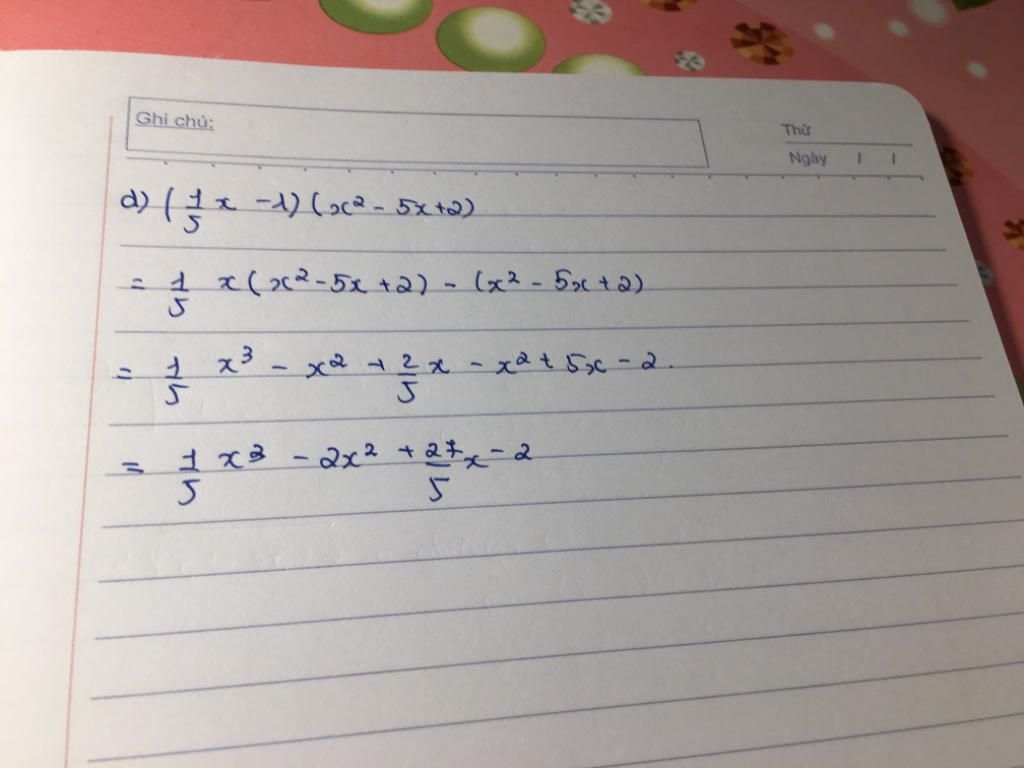 Ghi chú:
Thứ
Ngày / /
d) (1/5 x - 1) (x² - 5x + 2)
= 1/5 x (x² - 5x + 2) - (x² - 5x + 2)
= 1/5 x³ - x² + 2/5 x - x² + 5x - 2.
= 1/5 x³ - 2x² + 27/5 x - 2